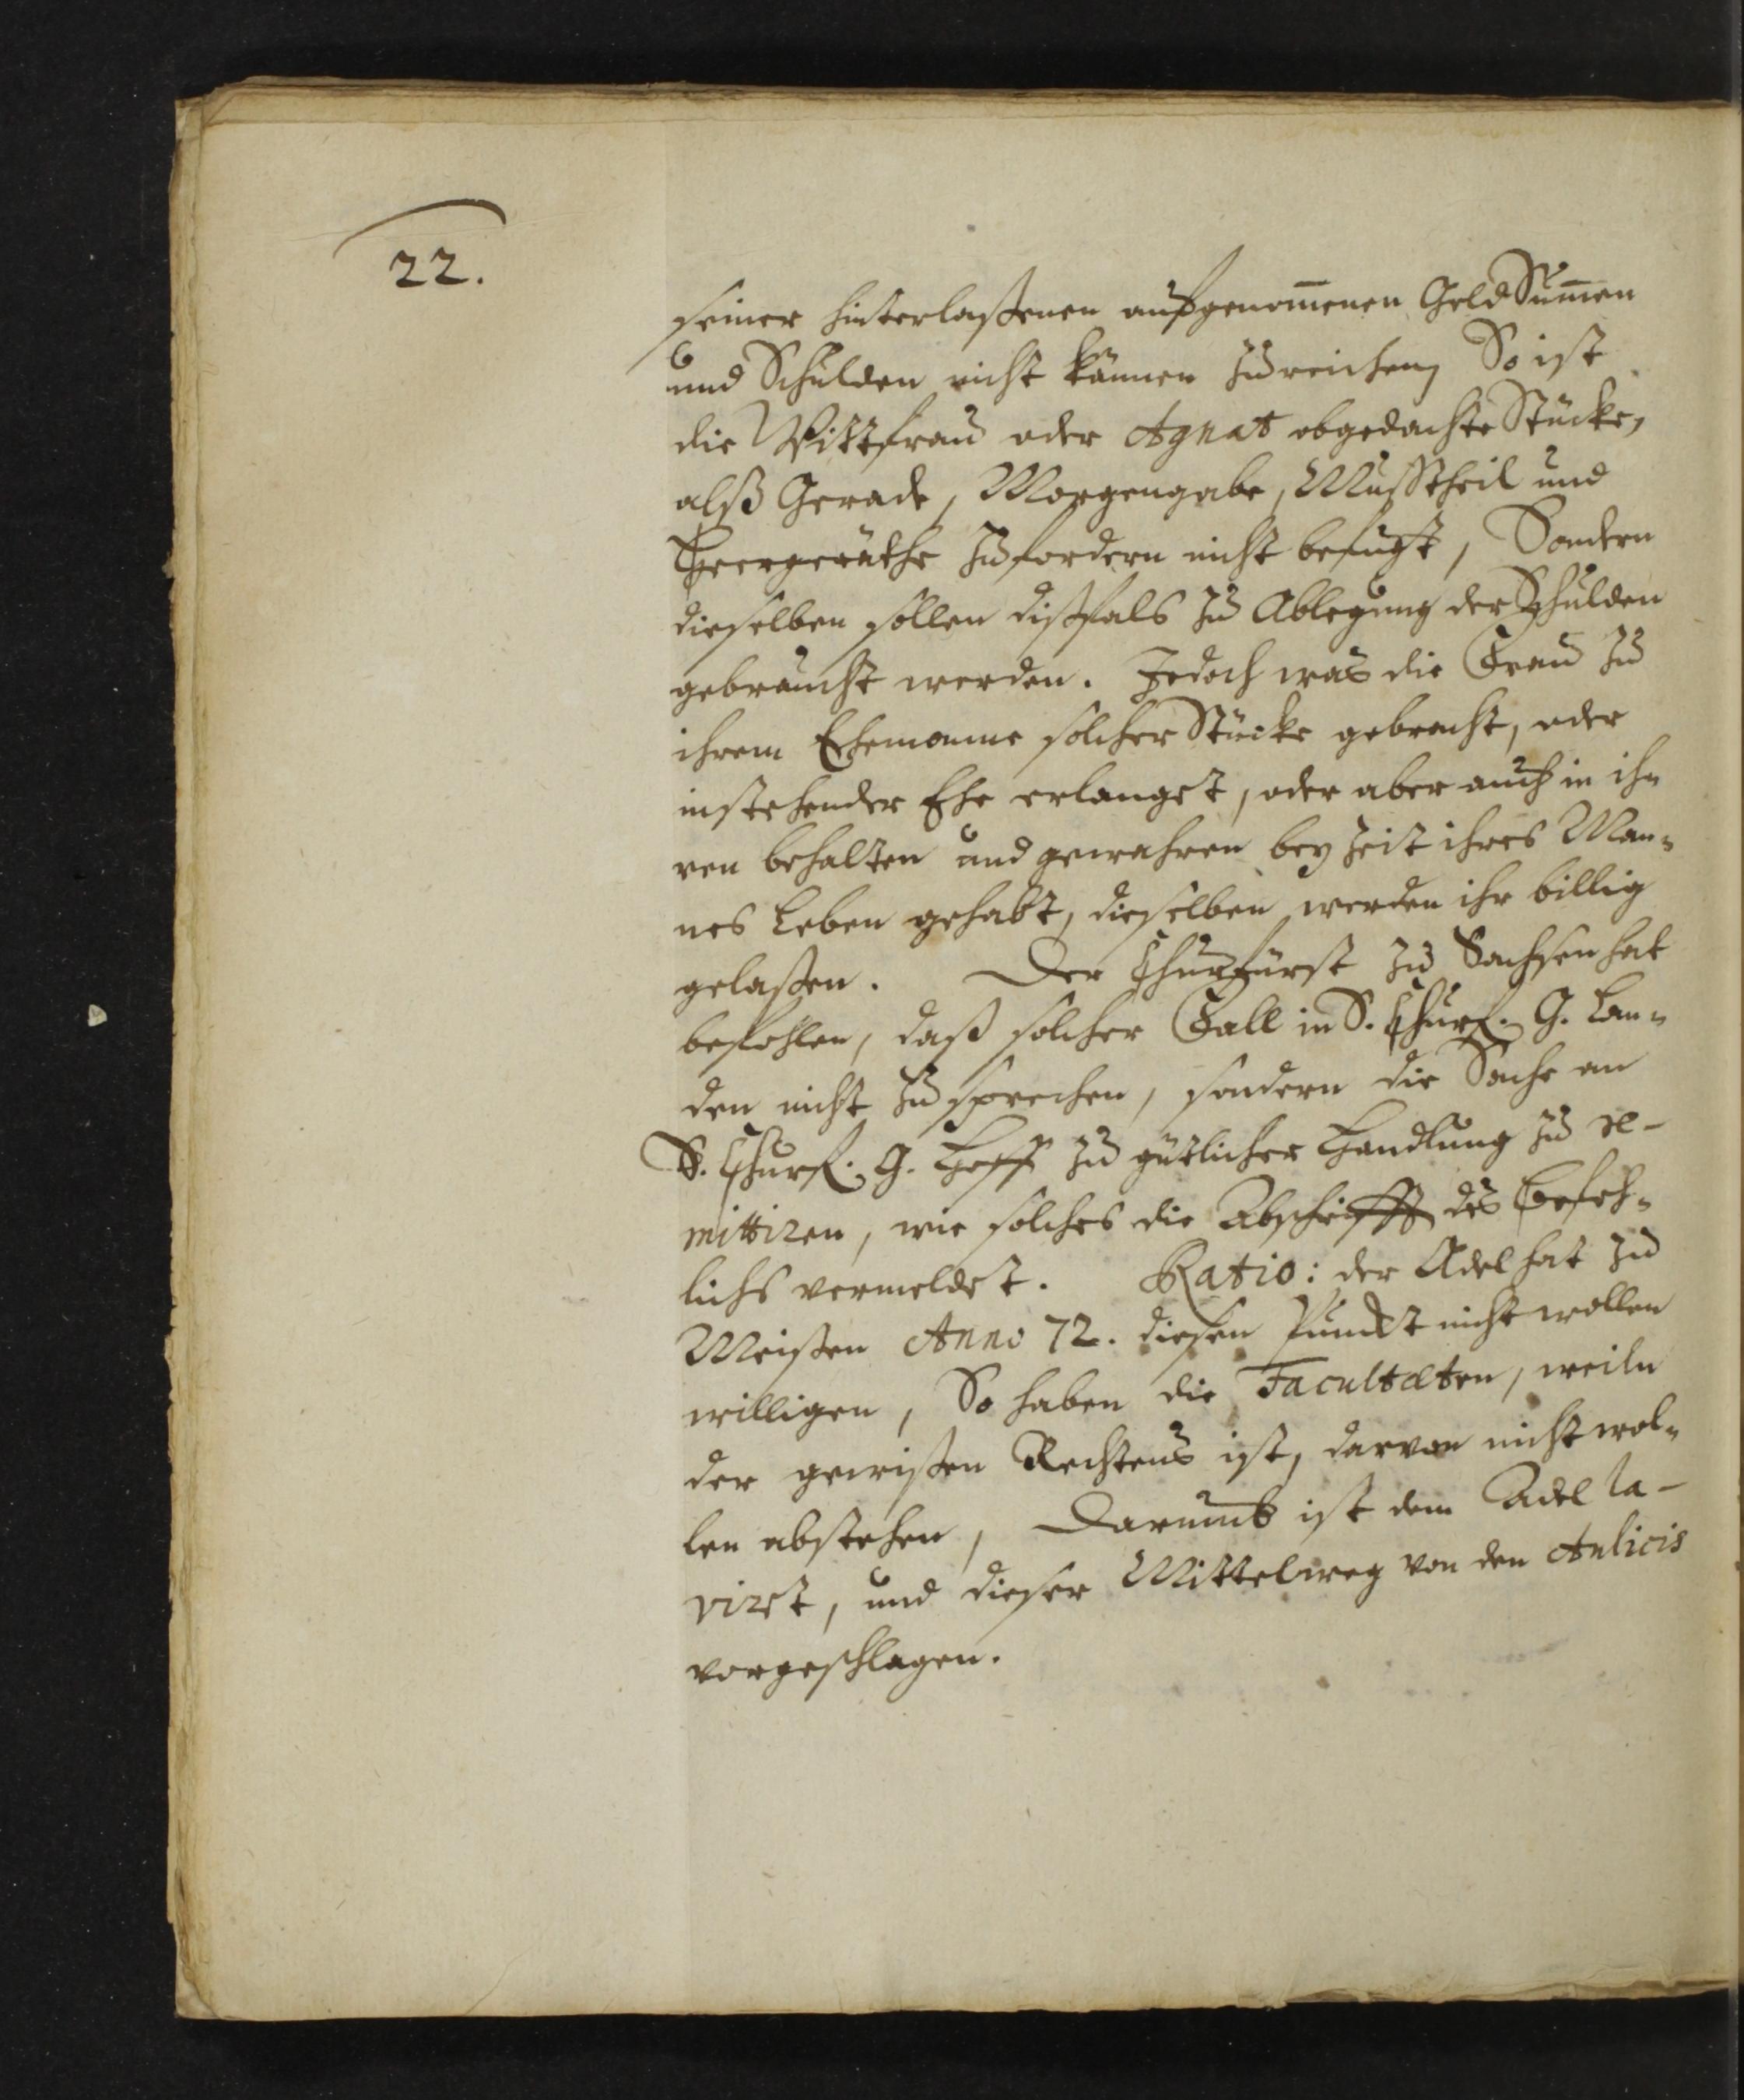 22.
seiner hinterlaßenen aufgenom̄enen Geld Sum̄en
und Schulden nicht können zureichen, So ist
die Wittfrau oder Agnat obgedachte Stücke,
alß Gerade, Morgengabe, Mußtheil und
Heergeräthe zufordern nicht befugt, Sondern
dieselben sollen dißfals zu Ablegung der Schulden
gebraucht werden. Jedoch was die Frau zu
ihrem Ehemanne solcher Stücke gebracht, oder
instehender Ehe erlanget, oder aber auch in ih-
ren behalten und gewahren bey Zeit ihres Man-
nes Leben gehabt, dieselben werden ihr billig
gelaßen. Der Churfürst zu Sachsen hat
befohlen, daß solcher Fall in S. Churf. G. Lan-
den nicht zu sprechen, sondern die Sache an
S. Churf. G. Hoff zu gütlicher Handlung zu re-
mittiren, wie solches die Abschrifft des Befeh-
lichs vermeldet. Ratio: der Adel hat zu
Meißen Anno 72. diesen Punckt nicht wollen
willigen, So haben die Facultæten, weiln
der gewißen Rechtens ist, darvon nicht wol-
len abstehen, Darumb ist dem Adel la-
viret, und dieser Mittelweg von den Aulicis
vorgeschlagen.